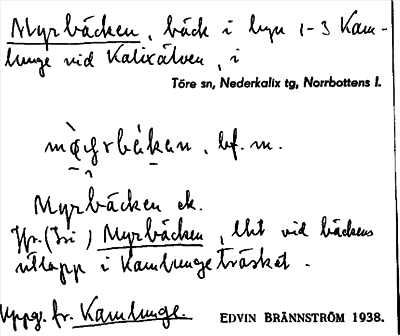 Myrbäcken, bäck i byn 1-3 Kam-
lunge vid Kalixälven, i
Töre sn, Nederkalix tg, Norrbottens l.
bf. m.
Myrbäcken ek.
Jfr. (Tri) Myrbäcken, lht vid bäckens
utlopp i Kamlungeträsket.
Uppg. fr. Kamlunge. EDVIN BRÄNNSTRÖM 1938.